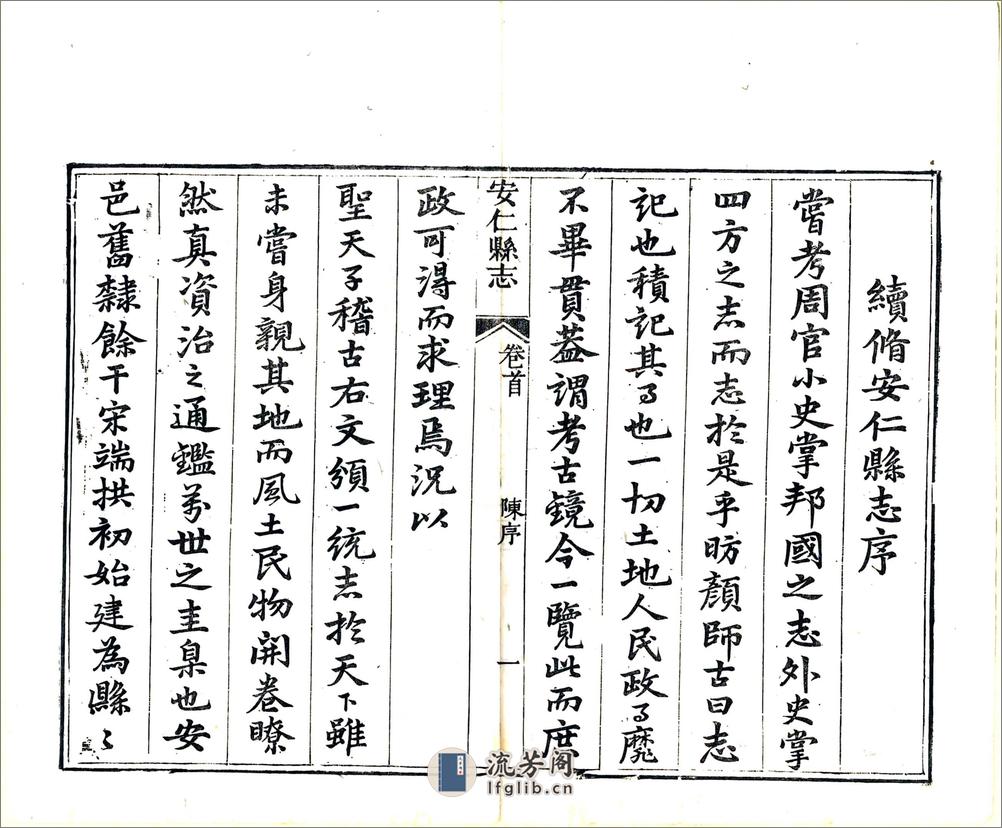 續脩安仁縣志序
嘗考周官小史掌邦國之志外史掌
四方之志而志於是乎昉顏師古曰志
記也積記其事也一切土地人民政事靡
不畢貫葢謂考古鏡今一覽此而庶
安仁縣志
卷首
陳序
一
政可得而求理焉況以
聖天子稽古右文頒一統志於天下雖
未嘗身親其地而風土民物開卷瞭
然真資治之通鑑萬世之圭臬也安
邑舊隸餘干宋端拱初始建為縣〻
流芳阁
lfglib.cn